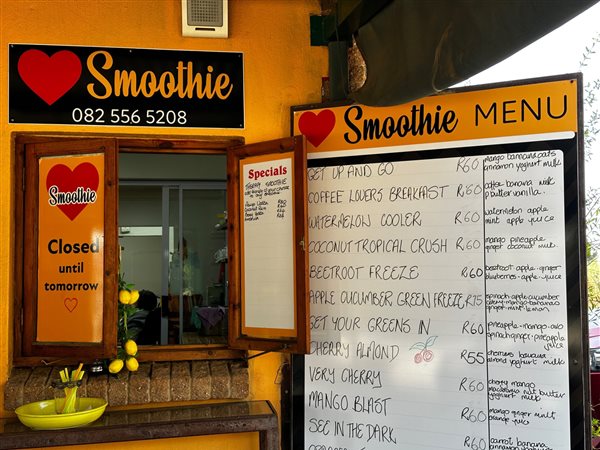 Smoothie
082 556 5208
Smoothie
Closed
until
tomorrow
Specials
Smoothie MENU
GET UP AND GO R60 mango banana oats
cinnamon yoghurt milk
COFFEE LOVERS BREAKFAST R60 coffee banana milk
p butter vanilla
WATERMELON COOLER R60 watermelon apple
mint apple juice
COCONUT TROPICAL CRUSH R60 mango pineapple
ginger coconut milk
BEETROOT FREEZE R60 beetroot apple ginger
blueberries apple juice
APPLE CUCUMBER GREEN FREEZE R75 spinach apple cucumber
ginger mint lemon
GET YOUR GREENS IN R60 pineapple mango avo
spinach ginger pineapple
juice
CHERRY ALMOND R55 cherries banana
almond yoghurt milk
VERY CHERRY R60 cherry mango
nut butter
yoghurt milk
MANGO BLAST R60 mango ginger mint
orange juice
SEE IN THE DARK R60 carrot banana